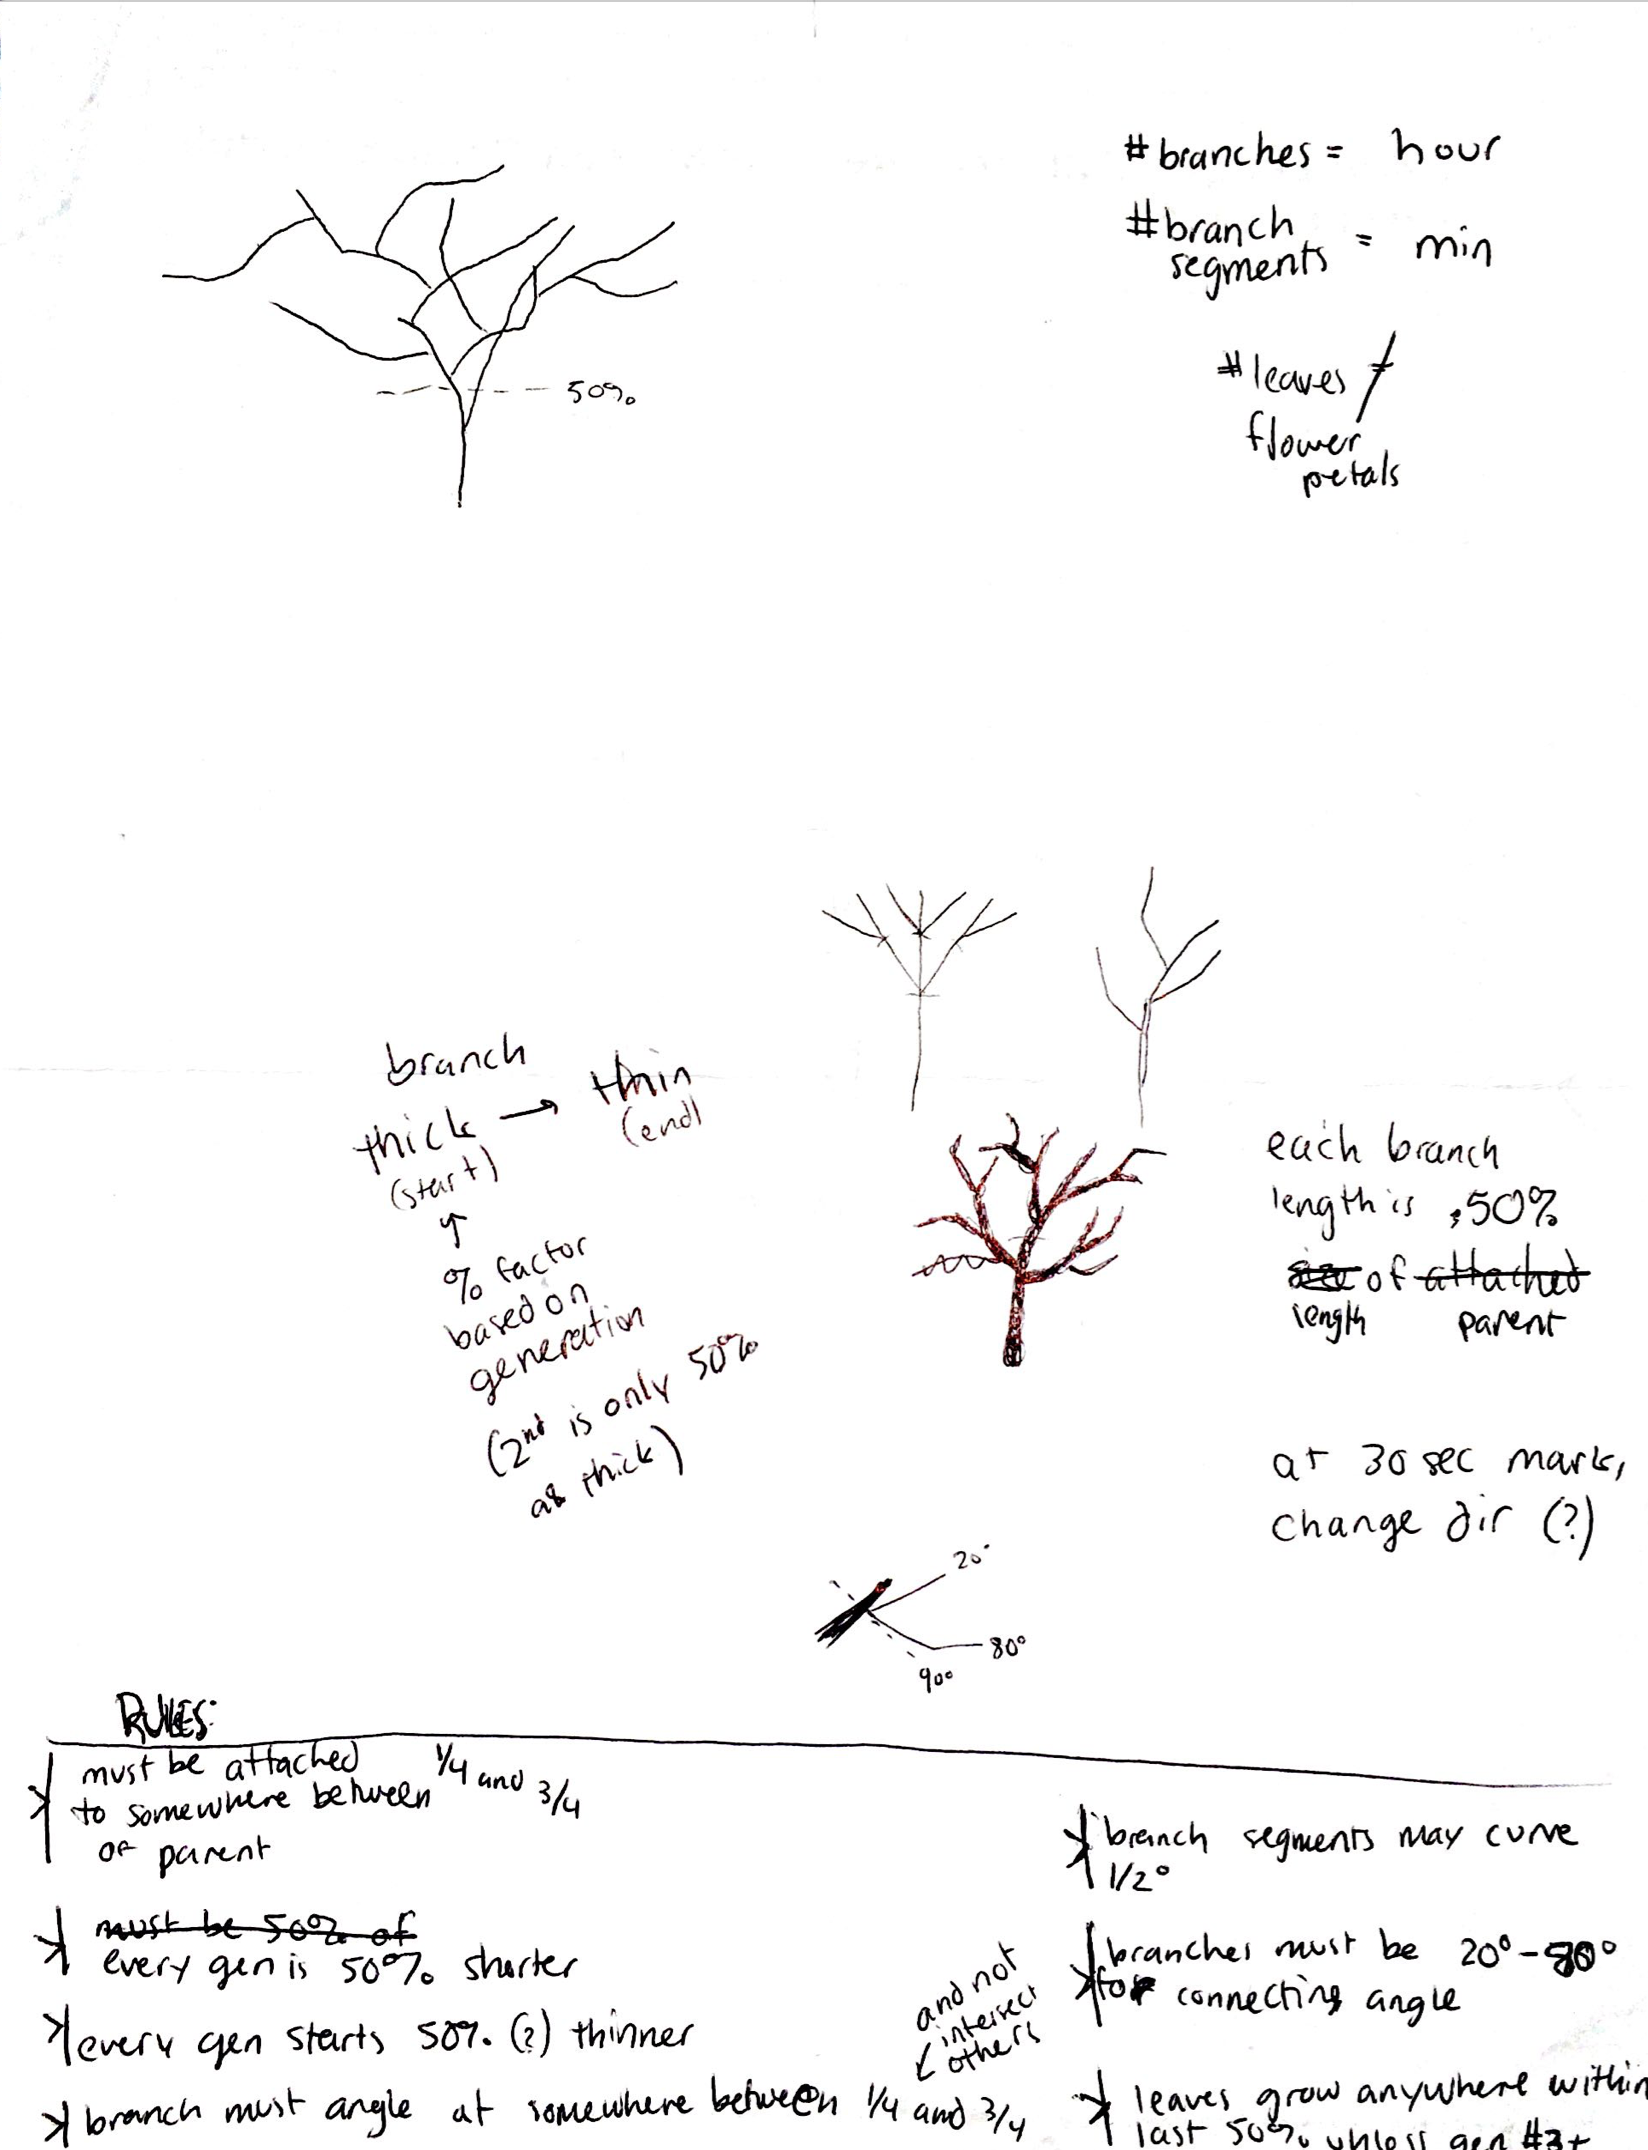 #branches = hour
#branch
segments = min
#leaves /
flower
petals
50%
branch
thick → thin
(start) (end)
↑
% factor
based on
generation
(2nd is only 50%
as thick)
each branch
length is .50%
of attached
length parent
at 30 sec mark,
change dir (?)
20°
80°
90°
RULES:
must be attached
to somewhere between 1/4 and 3/4
of parent
must be 50% of
every gen is 50% shorter
every gen starts 50% (?) thinner
branch must angle at somewhere between 1/4 and 3/4
and not
intersect
others
branch segments may curve
1/2°
branches must be 20°-80°
for connecting angle
leaves grow anywhere within
last 50% unless gen #3+